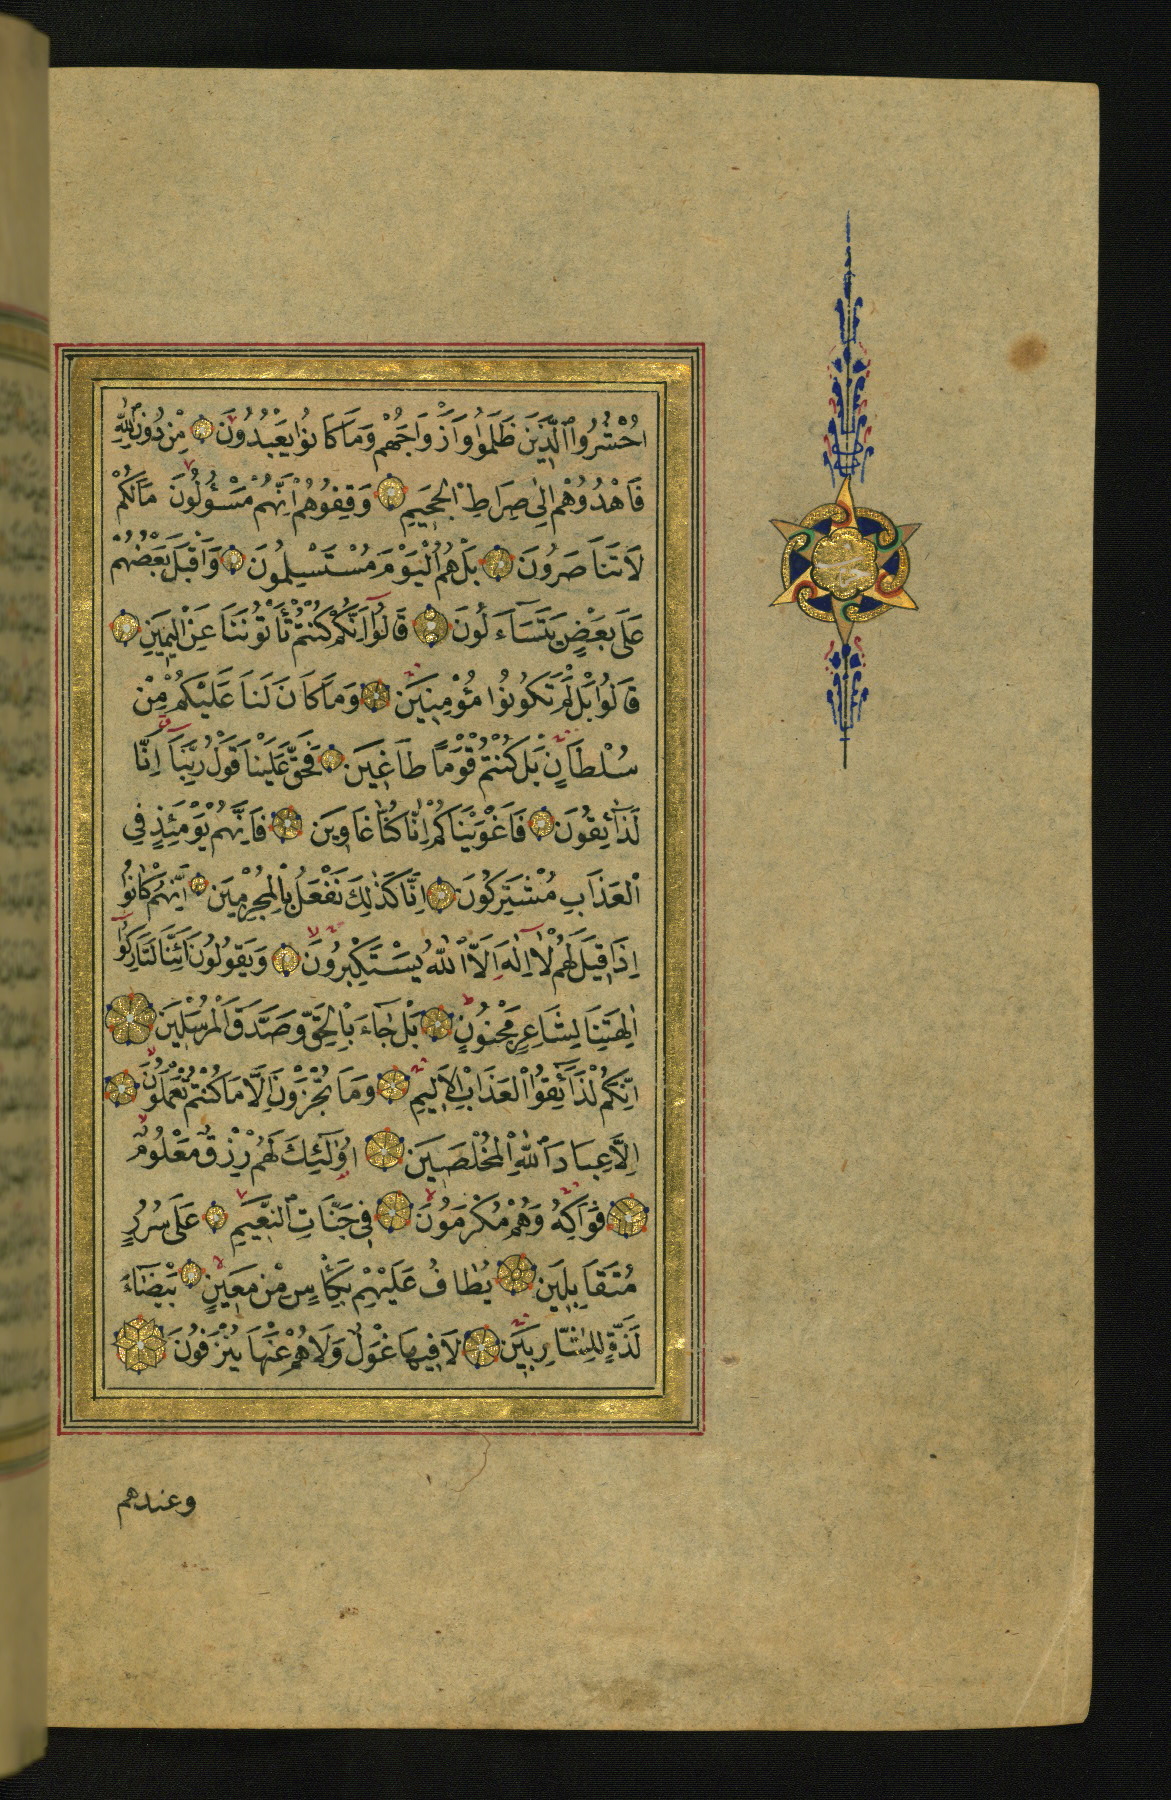 اُحْشُرُوا الَّذِينَ ظَلَمُوا وَاَزْوَاجَهُمْ وَمَا كَانُوا يَعْبُدُونَ مِنْ دُونِ اللّٰهِ
فَاهْدُوهُمْ اِلٰى صِرَاطِ الْجَحِيمِ وَقِفُوهُمْ اِنَّهُمْ مَسْؤُلُونَ مَالَكُمْ
لَا تَنَاصَرُونَ بَلْ هُمُ الْيَوْمَ مُسْتَسْلِمُونَ وَاَقْبَلَ بَعْضُهُمْ
عَلٰى بَعْضٍ يَتَسَآءَلُونَ قَالُوا اِنَّكُمْ كُنْتُمْ تَأْتُونَنَا عَنِ الْيَمِينِ
قَالُوا بَلْ لَمْ تَكُونُوا مُؤْمِنِينَ وَمَا كَانَ لَنَا عَلَيْكُمْ مِنْ
سُلْطَانٍ بَلْ كُنْتُمْ قَوْمًا طَاغِينَ فَحَقَّ عَلَيْنَا قَوْلُ رَبِّنَا اِنَّا
لَذَآئِقُونَ فَاَغْوَيْنَاكُمْ اِنَّا كُنَّا غَاوِينَ فَاِنَّهُمْ يَوْمَئِذٍ فِي
الْعَذَابِ مُشْتَرِكُونَ اِنَّا كَذٰلِكَ نَفْعَلُ بِالْمُجْرِمِينَ اِنَّهُمْ كَانُوا
اِذَا قِيلَ لَهُمْ لَا اِلٰهَ اِلَّا اللّٰهُ يَسْتَكْبِرُونَ وَيَقُولُونَ اَئِنَّا لَتَارِكُوا
اٰلِهَتِنَا لِشَاعِرٍ مَجْنُونٍ بَلْ جَآءَ بِالْحَقِّ وَصَدَّقَ الْمُرْسَلِينَ
اِنَّكُمْ لَذَآئِقُوا الْعَذَابِ الْاَلِيمِ وَمَا تُجْزَوْنَ اِلَّا مَا كُنْتُمْ تَعْمَلُونَ
اِلَّا عِبَادَ اللّٰهِ الْمُخْلَصِينَ اُولٰٓئِكَ لَهُمْ رِزْقٌ مَعْلُومٌ
فَوَاكِهُ وَهُمْ مُكْرَمُونَ فِي جَنَّاتِ النَّعِيمِ عَلٰى سُرُرٍ
مُتَقَابِلِينَ يُطَافُ عَلَيْهِمْ بِكَأْسٍ مِنْ مَعِينٍ بَيْضَآءَ
لَذَّةٍ لِلشَّارِبِينَ لَا فِيهَا غَوْلٌ وَلَا هُمْ عَنْهَا يُنْزَفُونَ
وعندهم
حزب